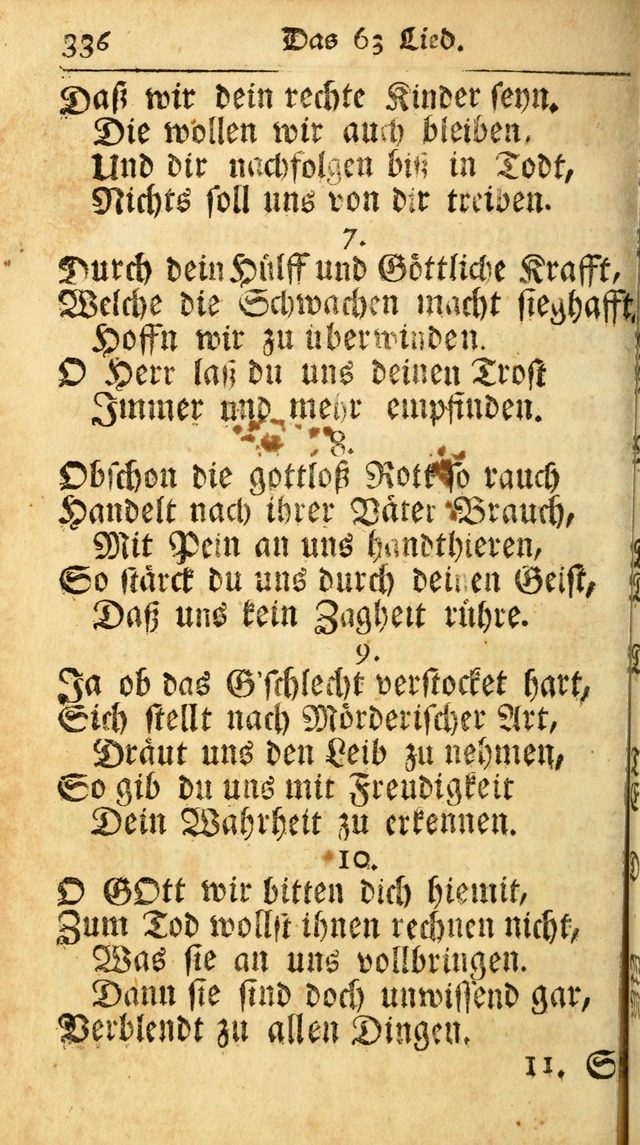 336 Das 63 Lied.
Daß wir dein rechte Kinder seyn.
Die wollen wir auch bleiben.
Und dir nachfolgen biß in Todt,
Nichts soll uns von dir treiben.
7.
Durch dein Hülff und Göttliche Krafft,
Welche die Schwachen macht sieghafft,
Hoffn wir zu überwinden.
O Herr laß du uns deinen Trost
Immer und mehr empfinden.
8.
Obschon die gottloß Rott so rauch
Handelt nach ihrer Väter Brauch,
Mit Pein an uns handthieren,
So stärck du uns durch deinen Geist,
Daß uns kein Zagheit rühre.
9.
Ja ob das G'schlecht verstocket hart,
Sich stellt nach Mörderischer Art,
Dräut uns den Leib zu nehmen,
So gib du uns mit Freudigkeit
Dein Wahrheit zu erkennen.
10.
O GOtt wir bitten dich hiemit,
Zum Tod wollst ihnen rechnen nicht,
Was sie an uns vollbringen.
Dann sie sind doch unwissend gar,
Verblendt zu allen Dingen.
11. S